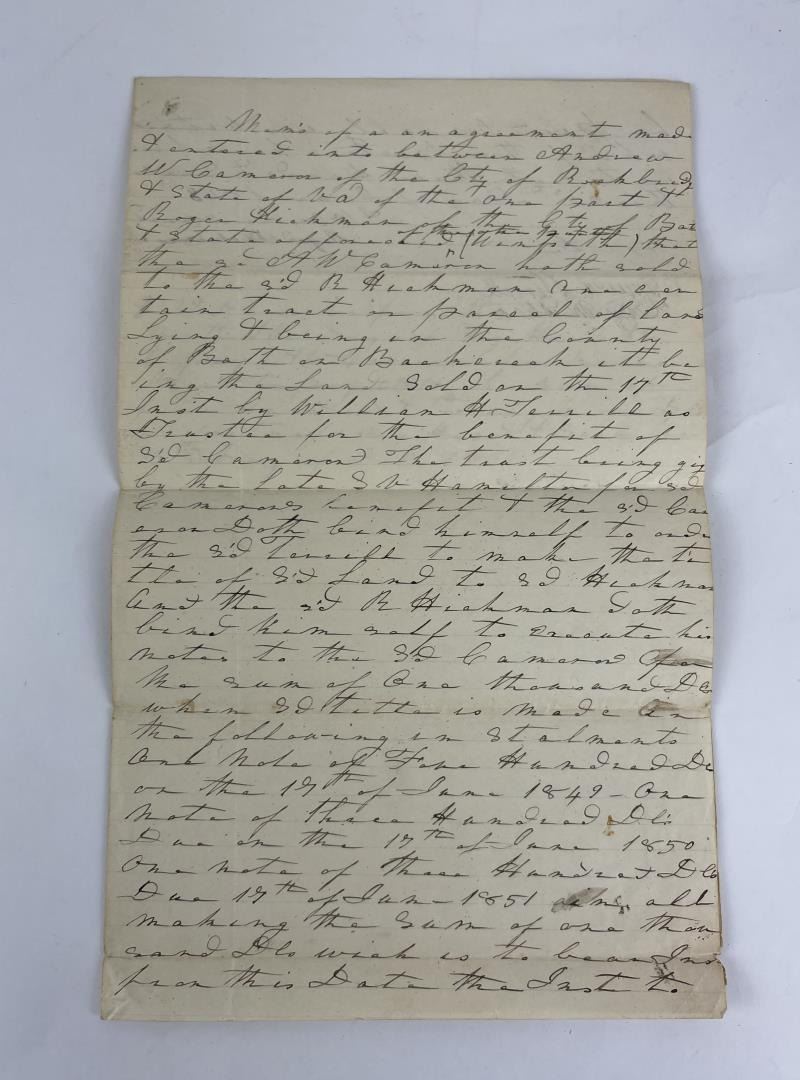 Mem's of a an agreement made
& entered into between Andrew
W Cameron of the Cty of Rockbridg
& State of Va of the one part &
Roger Hickman of the Cty of Bat
of the other part
& State afforesaid (Wensseth) that
the sd A W Cameron hath sold
to the s'd R Hickman one cer
tain tract or parcel of land
Lying & being in the County
of Bath on Backcreek it be
ing the Land Sold on the 17th
Inst by William H Terrill as
Trustee for the benefit of
S'd Cameron The trust being giv
by the late S V Hamilton for sd
Camerons benefit & the s'd Cam
eron Doth bind himself to orde
the S'd Terrill to make the ti
tle of S'd Land to Sd Hickman
And the s'd R Hickman doth
bind him self to Execute his
notes to the Sd Cameron for
the sum of One thousand Dls
when Sd title is made in
the following in Stalments
One Note of Four Hundred Dls
on the 17th of June 1849 - One
Note of three Hundred Dls
Due on the 17th of June 1850
One note of three Hundred Dls
Due 17th of Jun- 1851 all
making the Sum of one thou
sand Dls wich is to bear Ins
from this Date the Inst to